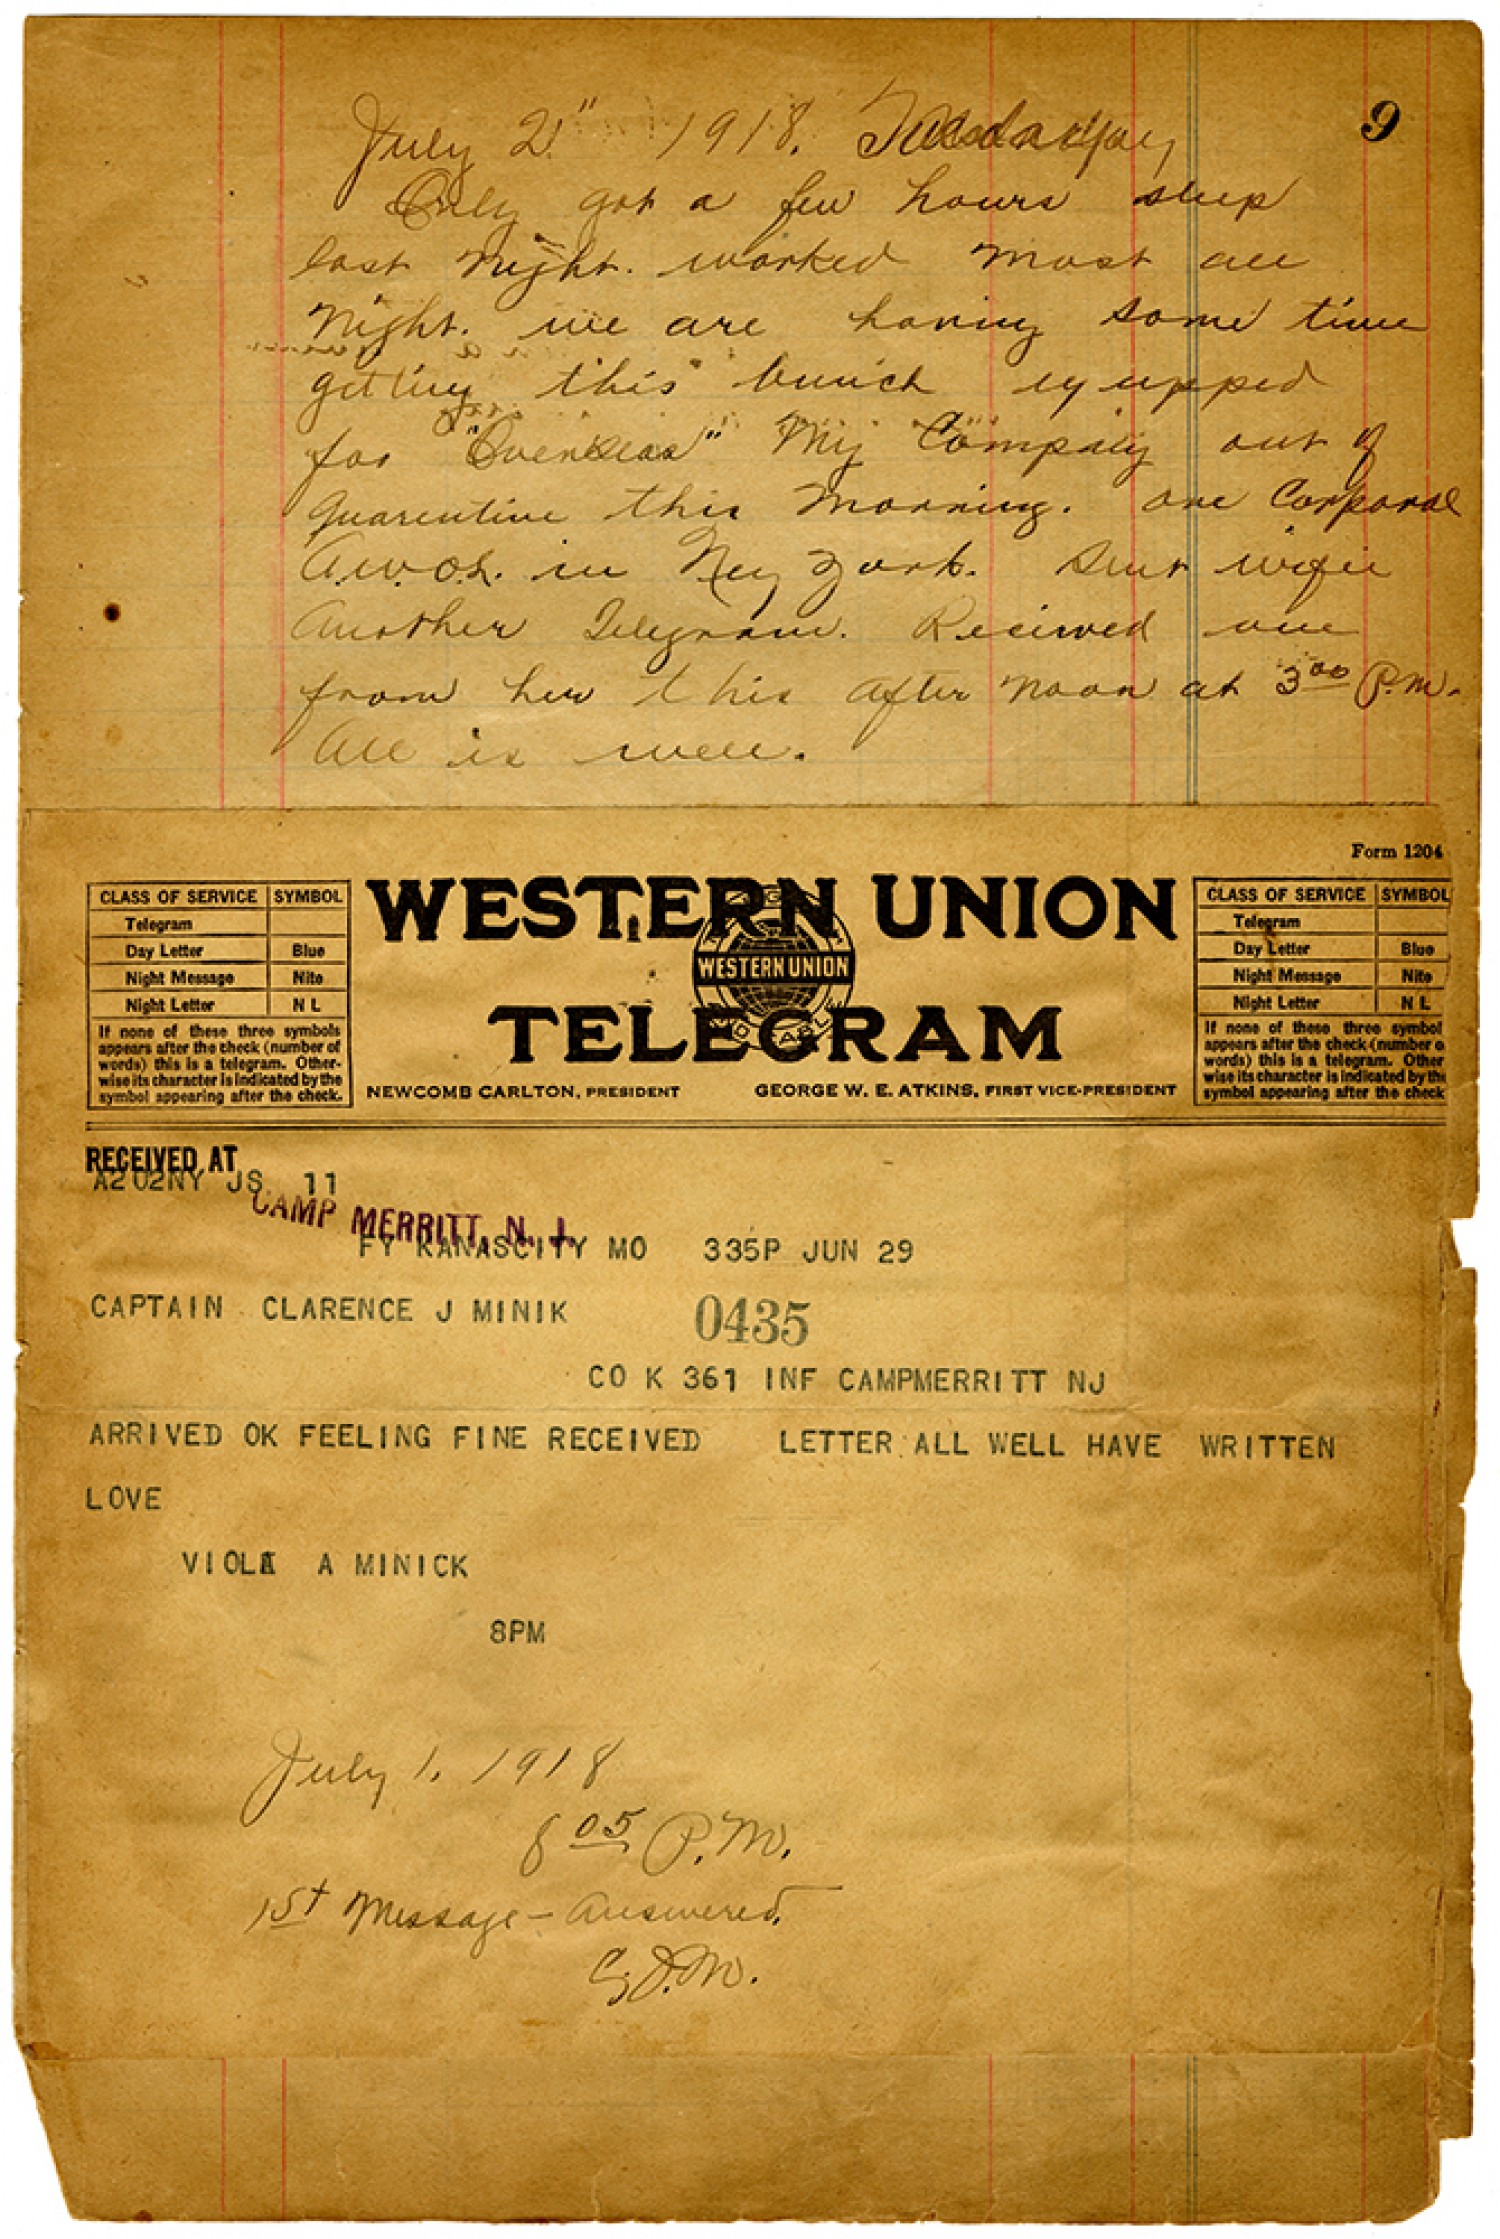 9
July 2" 1918. Tuesday
Only got a few hours sleep
last Night. worked most all
Night. we are having some time
getting this bunch equipped
for "Overseas" My Company out of
Quarentine this Morning. one Corporal
A.W.O.L. in New York. Sent wifie
Another Telegram. Recieved one
from her this after noon at 3 00 P.M.
All is well.
Form 1204
CLASS OF SERVICE SYMBOL
Telegram
Day Letter Blue
Night Message Nite
Night Letter N L
If none of these three symbols
appears after the check (number of
words) this is a telegram. Other-
wise its character is indicated by the
symbol appearing after the check.
WESTERN UNION
WESTERN UNION
TELEGRAM
NEWCOMB CARLTON, PRESIDENT GEORGE W. E. ATKINS, FIRST VICE-PRESIDENT
CLASS OF SERVICE SYMBOL
Telegram
Day Letter Blue
Night Message Nite
Night Letter N L
If none of these three symbol
appears after the check (number o
words) this is a telegram. Other
wise its character is indicated by the
symbol appearing after the check
RECEIVED AT
A202NY JS 11
CAMP MERRITT, N. J.
FY KANASCITY MO 335P JUN 29
CAPTAIN CLARENCE J MINIK 0435
CO K 361 INF CAMPMERRITT NJ
ARRIVED OK FEELING FINE RECEIVED LETTER ALL WELL HAVE WRITTEN
LOVE
VIOLA A MINICK
8PM
July 1. 1918
8 05 P.M.
1st Message - Answered.
C.J.M.